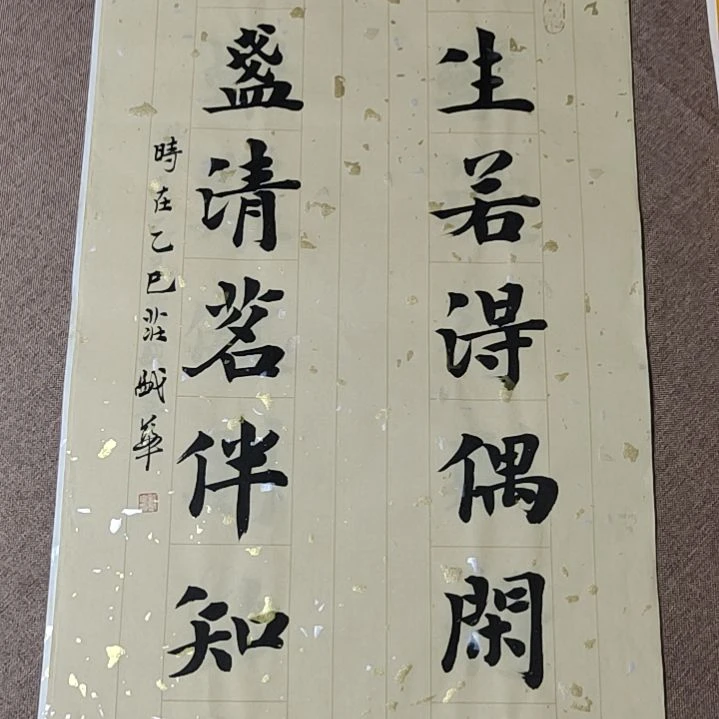 生若得偶閑
盞清茗伴知
時在乙巳莊華